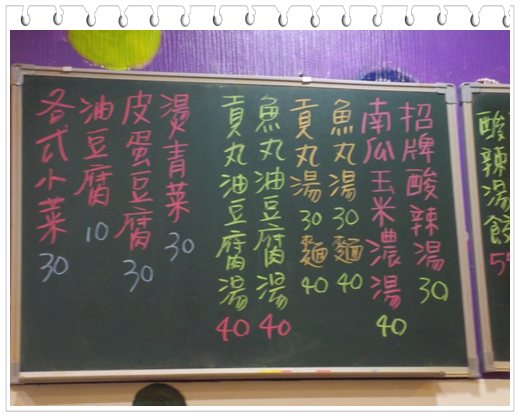 招牌酸辣湯30
南瓜玉米濃湯40
魚丸湯30麵40
貢丸湯30麵40
魚丸油豆腐湯40
貢丸油豆腐湯40
燙青菜30
皮蛋豆腐30
油豆腐10
各式小菜30
酸辣湯餃